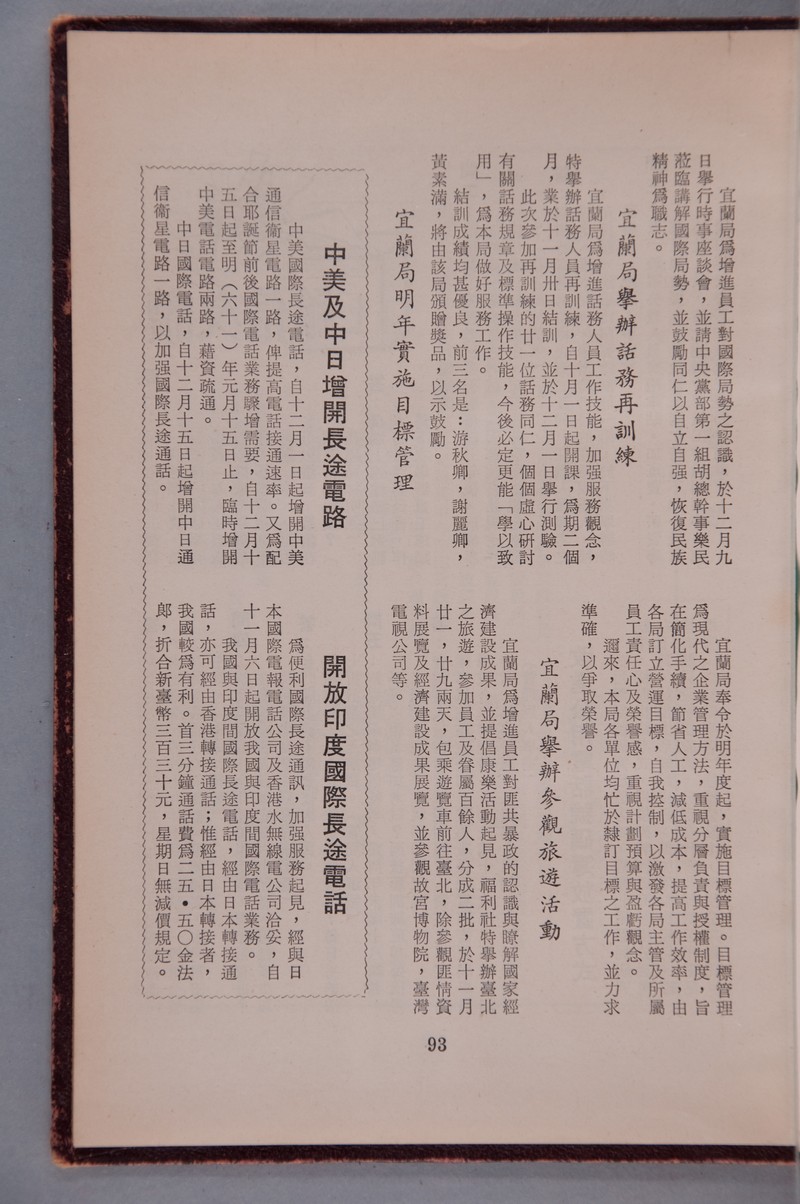 宜蘭局爲增進員工對國際局勢之認識，於十二月九
日舉行時事座談會，並請中央黨部第一組胡總幹事樂民
蒞臨講解國際局勢，並鼓勵同仁以自立自强，恢復民族
精神爲職志。
宜蘭局舉辦話務再訓練
宜蘭局爲增進話務人員工作技能，加强服務觀念，
特舉辦話務人員再訓練，自十月一日起開課，爲期二個
月，業於十一月卅日結訓，並於十二月一日舉行測驗。
此次參加再訓練的廿一位話務同仁，個個虛心研討
有關話務規章及標準操作技能，今後必定更能「學以致
用」，爲本局做好服務工作。
結訓成績均甚優良，前三名是：游秋卿，謝麗卿，
黃素滿，將由該局頒贈獎品，以示鼓勵。
宜蘭局明年實施目標管理
宜蘭局奉令於明年度起，實施目標管理。目標管理
爲現代之企業管理方法，重視分層負責與授權制度，旨
在簡化手續，節省人工，減低成本，提高工作效率，由
各局訂立營運目標，自我控制，以激發各局主管及所屬
員工責任心及榮譽感，重視計劃預算與盈虧觀念。
邇來，本局各單位均忙於隸訂目標之工作，並力求
準確，以爭取榮譽。
宜蘭局舉辦參觀旅遊活動
宜蘭局爲增進員工對匪共暴政的認識與瞭解國家經
濟建設成果，並提倡康樂活動起見，福利社特舉辦臺北
之旅遊，參加員工及眷屬百餘人，分成二批，於十一月
廿一，廿九兩天，包乘遊覽車前往臺北，除參觀匪情資
料展覽及經濟建設成果展覽，並參觀故宮博物院，臺灣
電視公司等。
中美及中日增開長途電路
中美國際長途電話，自十二月一日起增開中美
通信衛星電路一路，俾提高電話接通速率。又爲配
合耶誕節前後國際電話業務驟增需要，自十二月十
五日起至明（六十一）年元月十五日止，臨時增開
中美電話電路兩路，藉資疏通。
中日國際電話，自十二月十五日起增開中日通
信衛星電路一路，以加强國際長途通話。
開放印度國際長途電話
爲便利國際長途通訊，加强服務起見，經與日
本國際電報電話公司及香港水無線電公司洽妥，自
十一月六日起開放我國與印度間國際電話業務。
我國與印度間國際長途電話，經由日本轉接通
話，亦可經由香港轉接通話；惟經由日本轉接者，
我國較爲有利。首三分鐘通話費爲二五・五〇金法
郎，折合新臺幣三百三十元，星期日無減價規定。
93